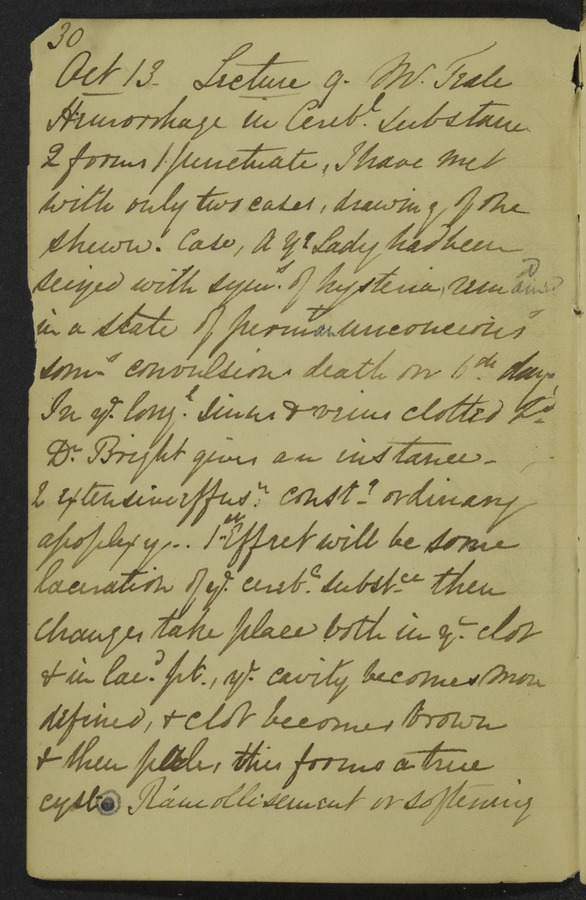 30
Oct 13. Lecture 9. W. Teale
Hemorrhage in Cereb.l substance
2 forms 1 punctuate, I have met
with only two cases, drawing of one
shewn. Case, A yg Lady had been
seized with sym.s of hysteria, remained
in a state of perman unconcious
som.s convulsions death on 6th day,
In ye. long.l sinus & veins clotted
Dr Bright gives an instance -
2 extensive effus.n const.g ordinary
apoplexy.. 1st Effect will be some
laceration of ye. cereb.l subst.ce then
changes take place both in ye. clot
& in lac.d pt., ye. cavity becomes more
defined, & clot becomes brown
& then pale, this forms a true
cyst. Ramollisement or softening